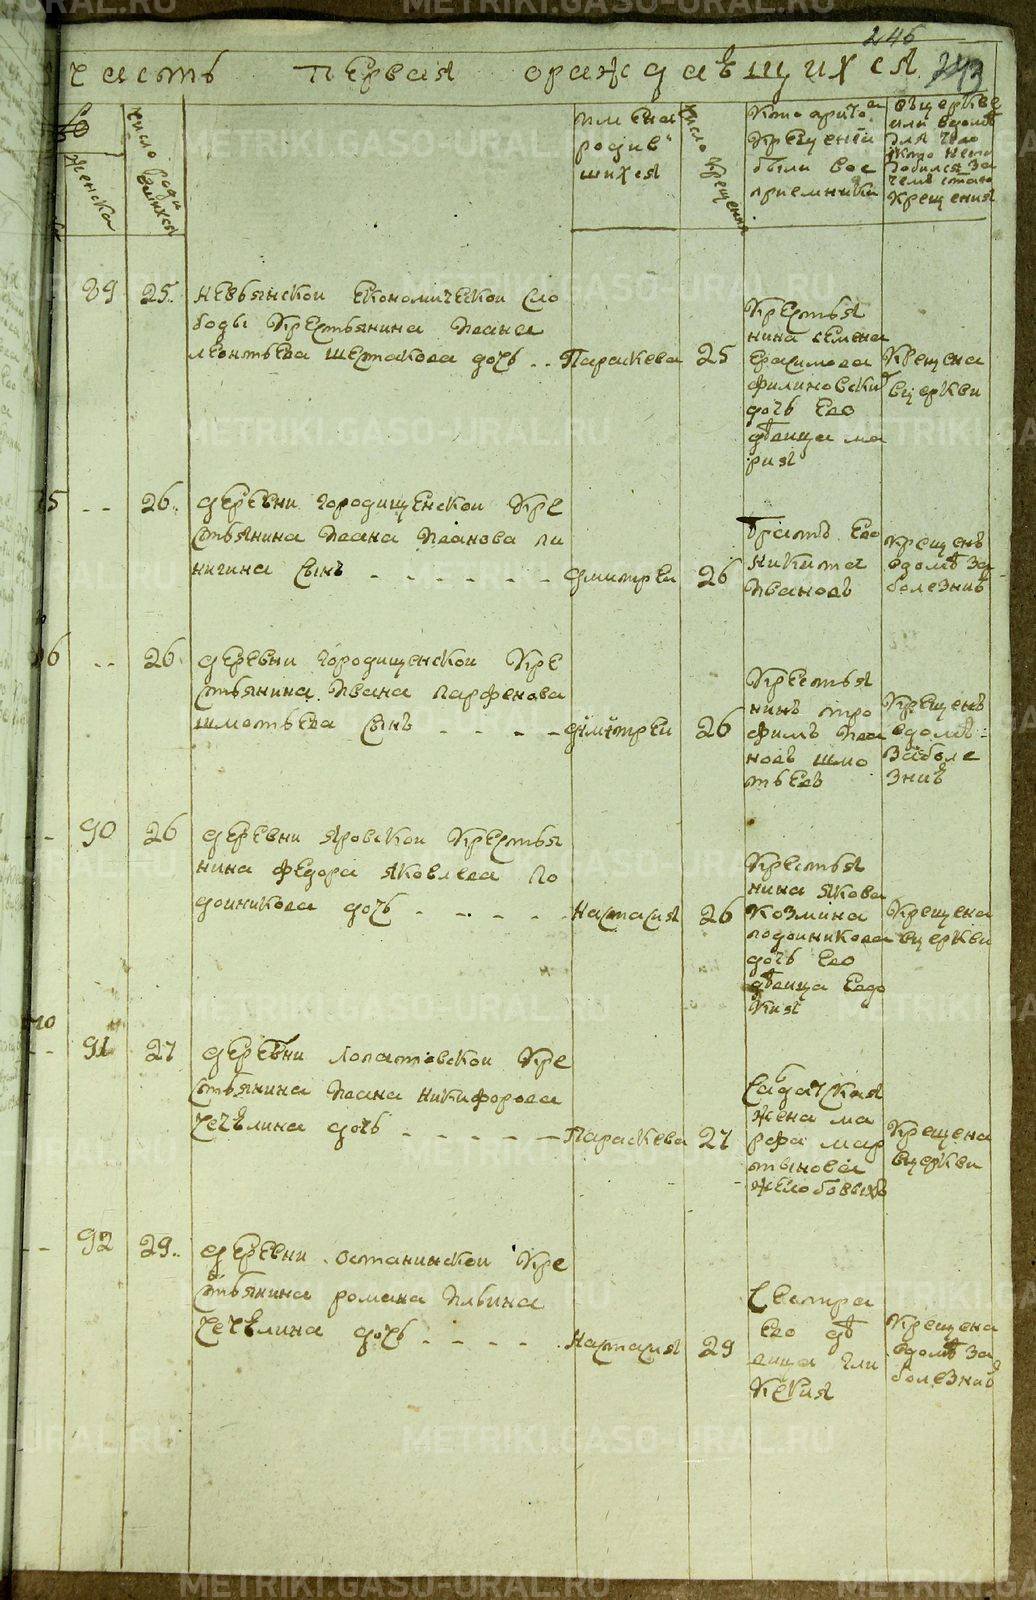 METRIKI.GASO-URAL.RU
246
часть первая ораждаѣщихся 243
женска
число роди
вшихся
имена
родив
шихся
число крещения
кто при томъ
крещении
были вос
приемники
вцеркве
или вдомѣ
для чего
крещения
89 25 невьянской економической сло
боды крестьянина Ивана
леонтьева шестакова дочь Параскева 25
крестья
нина семена
герасимова
филиновских
дочь ево
дѣвица ма
рия
крещена
вцеркви
26 деревни городищенской кре
стьянина Ивана Иванова пи
нигина сынъ дмитреи 26
братъ ево
никита
Ивановъ
крещенъ
вдомѣ за
болезнию
26 деревни городищенской кре
стьянина Ивана парфенова
шмотьева сынъ димитреи 26
крестья
нинъ тро
фимъ Ива
новъ шмо
тьевъ
крещенъ
вдомѣ
заболе
знию
90 26 деревни яровской крестья
нина федора яковлева по
доиникова дочь настасия 26
крестья
нина якова
козмина
подоиникова
дочь ево
дѣвица евдо
кия
крещена
вцеркви
91 27 деревни лопатовской кре
стьянина Ивана никифорова
чечѣлина дочь Параскева 27
салдатская
жена ма
рфа мар
тынова
желобовыхъ
крещена
вцеркви
92 29 деревни останинской кре
стьянина романа Ильина
чечѣлина дочь настасия 29
сестра
ево дѣ
вица гли
керия
крещена
вдомѣ за
болезнию